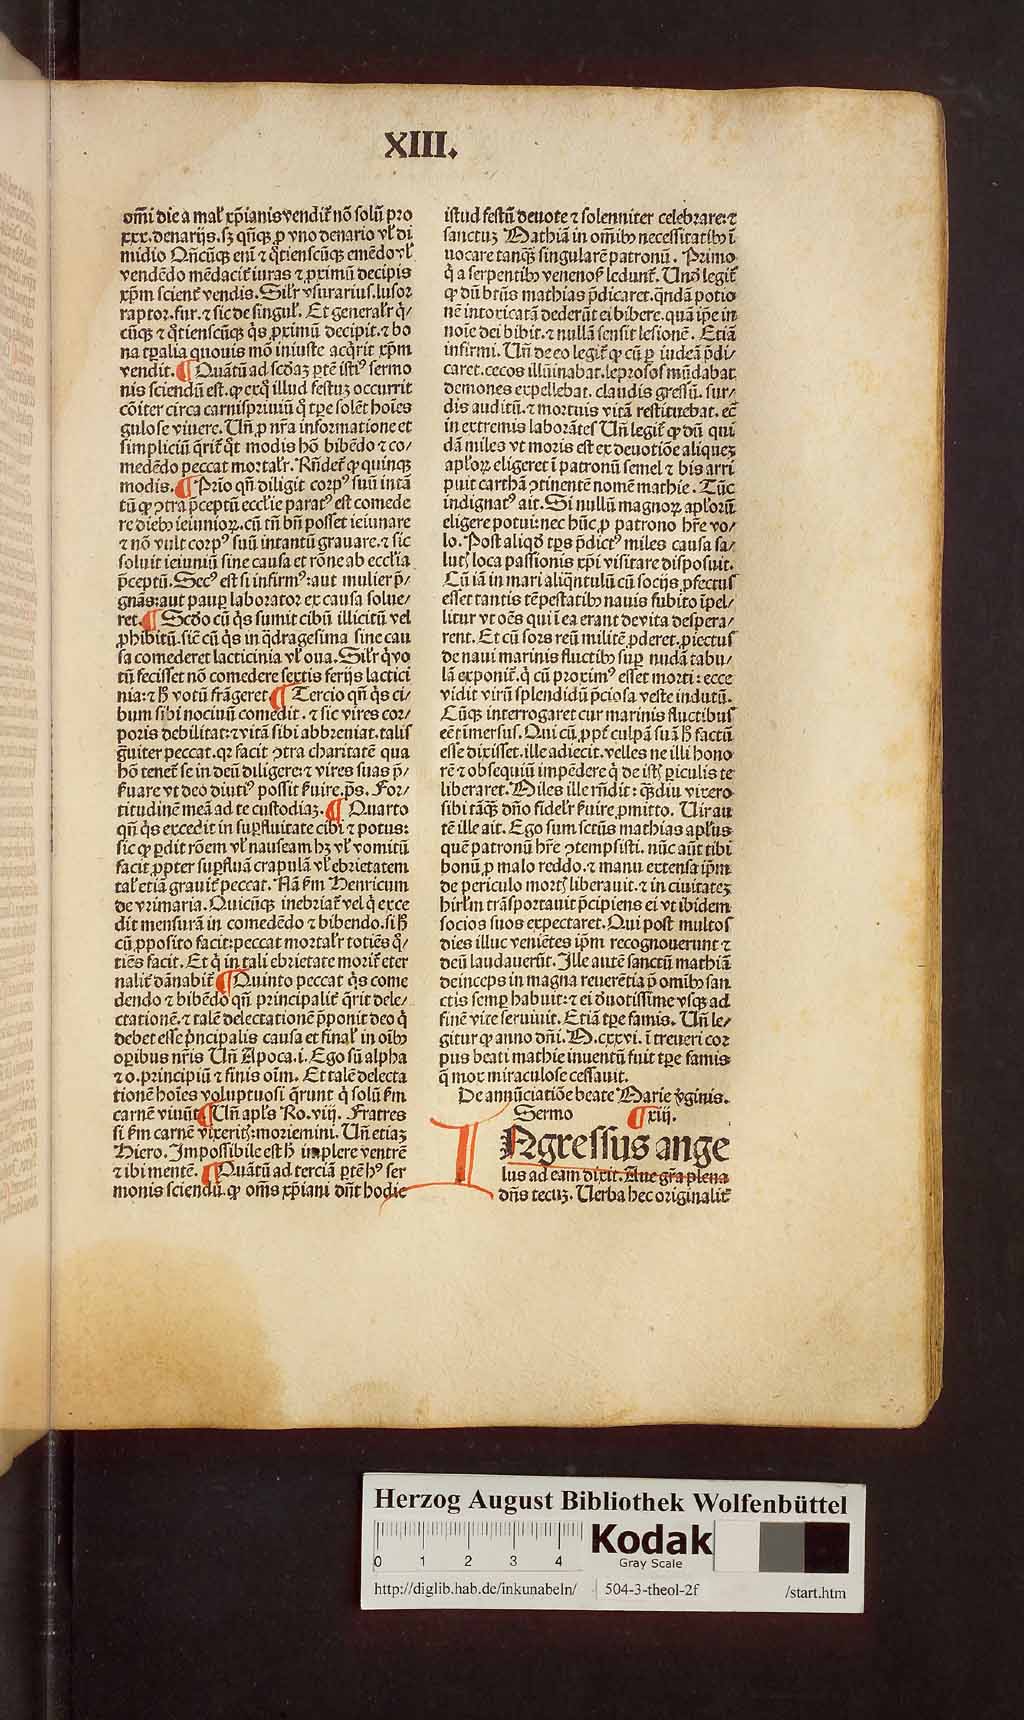 XIII.
om̄i die a mal᷒ xp̄ianis vendit᷑ nō solū pro
xxx. denarijs. sꝫ qn̄qꝫ ꝓ vno denario vl᷒ di
midio Qn̄cūqꝫ eni᷒ ⁊ q̄tienscūqꝫ emēdo vl᷒
vendēdo mēdacit᷑ iuras ⁊ ꝓximū decipis
xp̄m scient᷑ vendis. Sil᷒r vsurarius. lusor
raptor. fur. ⁊ sic de singul᷒. Et general᷒r q̄/
cūqꝫ ⁊ q̄tienscūqꝫ q̄s ꝓximū decipit. ⁊ bo
na tꝑalia quouis mō iniuste acq̄rit xp̄m
vendit. ¶ Quātū ad scd̄aꝫ ꝑtē istiꝰ sermo
nis sciendū est. ꝙ exq̄ illud festuꝫ occurrit
cōiter circa carnispriuiū q̄ tꝑe solēt hoīes
gulose viuere. Un̄ ꝓ nr̄a informatione et
simpliciū q̄rit᷑ q̄t modis hō bibēdo ⁊ co/
medēdo peccat mortal᷒r. Rn̄det᷑ ꝙ quinqꝫ
modis. ¶ Prīo qn̄ diligit corpꝰ suū intā
tū ꝙ ꝯtra p̄ceptū eccl᷒ie paratꝰ est comede
re diebꝫ ieiunioꝝ. cū tn̄ bn̄ posset ieiunare
⁊ nō vult corpꝰ suū intantū grauare. ⁊ sic
soluit ieiuniū sine causa et rōne ab eccl᷒ia
p̄ceptū. Secꝰ est si infirmꝰ: aut mulier p̄/
gnās: aut pauꝑ laborator ex causa solue/
ret. ¶ Scd̄o cū q̄s sumit cibū illicitū vel
ꝓhibitū. sic᷑ cū q̄s in q̄dragesima sine cau
sa comederet lacticinia vl᷒ oua. Sil᷒r q̄ vo
tū fecisset nō comedere sextis ferijs lactici
nia: ⁊ ꝭ votū frāgeret ¶ Tercio qn̄ q̄s ci/
bum sibi nociuū comedit. ⁊ sic vires cor/
poris debilitat: ⁊ vitā sibi abbreniat. talis
g̊uiter peccat. qꝛ facit ꝯtra charitatē qua
hō tenet᷑ se in deū diligere: ⁊ vires suas p̄/
ẜuare vt deo diutiꝰ possit ẜuire. p̄s. For/
titudinē meā ad te custodiaꝫ. ¶ Quarto
qn̄ q̄s excedit in suꝑfluitate cibi ⁊ potus:
sic ꝙ ꝑdit rōem vl᷒ nauseam hꝫ vl᷒ vomitū
facit ꝓpter suꝑfluā crapulā vl᷒ ebrietatem
tal᷒ etiā grauit᷑ peccat. Nā ẜm Henricum
de vrimaria. Quicūqꝫ inebriat᷑ vel q̄ exce
dit mensurā in comedēdo ⁊ bibendo. si ꝭ
cū ꝓposito facit: peccat mortal᷒r totiēs q̄/
tiēs facit. Et q̄ in tali ebrietate morit᷑ eter
nalit᷑ dānabit᷑ ¶ Quinto peccat q̄s come
dendo ⁊ bibēdo qn̄ principalit᷑ q̄rit dele/
ctationē. ⁊ talē delectationē p̄ponit deo q̄
debet esse p̄ncipalis causa et final᷒ in oībꝫ
oꝑibus nr̄is Un̄ Apoca. i. Ego sū alpha
⁊ o. principiū ⁊ finis oīm. Et talē delecta
tionē hoīes voluptuosi q̄runt q̄ solū ẜm
carnē viuūt. ¶ Un̄ apl᷒s Ro. viij. Fratres
si ẜm carnē vixeritꝭ: moriemini. Un̄ etiaꝫ
Hiero. Impossibile est ꝭ implere ventrē
⁊ ibi mentē. ¶ Quātū ad terciā ꝑtē hꝰ ser
monis sciendū. ꝙ om̄s xp̄iani dn̄t hodie
istud festū deuote ⁊ solenniter celebrare: ⁊
sanctuꝫ Mathiā in om̄ibꝫ necessitatibꝫ ī
uocare tanqꝫ singularē patronū. Primo
q̄ a serpentibꝫ venenoſ᷒ ledunt᷑. Und̄ legit᷑
ꝙ dū btūs mathias p̄dicaret. qn̄dā potio
nē intoxicatā dederūt ei bibere. quā ip̄e in
noīe dei bibit. ⁊ nullā sensit lesionē. Etiā
infirmi. Un̄ de eo legit᷑ ꝙ cū ꝑ iudeā p̄di/
caret. cecos illūinabat. leprosos mūdabat
demones expellebat. claudis gressū. sur/
dis auditū. ⁊ mortuis vitā restituebat. ec̄
in extremis laborātes Un̄ legit᷑ ꝙ dū qui
dā miles vt moris est ex deuotiōe aliqueꝫ
apl᷒oꝝ eligeret ī patronū semel ⁊ bis arri
puit carthā ꝯtinentē nomē mathie. Tūc
indignatꝰ ait. Si nullū magnoꝝ apl᷒oꝝ
eligere potui: nec hūc ꝓ patrono hr̄e vo/
lo. Post aliqd̄ tꝑs p̄dictꝰ miles causa sa/
lutꝭ loca passionis xp̄i visitare disposuit.
Cū iā in mari aliqn̄tulū cū socijs ꝓfectus
esset tantis tēpestatibꝫ nauis subito īpel/
litur vt oēs qui ī ea erant de vita despera/
rent. Et cū sors reū militē ꝓderet. ꝓiectus
de naui marinis fluctibꝫ suꝑ nudā tabu/
lā exponit᷑. q̄ cū proximꝰ esset morti: ecce
vidit virū splendidū p̄ciosa veste indutū.
Cūqꝫ interrogaret cur marinis fluctibus
eēt imersus. Qui cū ꝓpt᷑ culpā suā ꝭ factū
esse dixisset. ille adiecit. velles ne illi hono
rē ⁊ obsequiū impēdere q̄ de istꝭ ꝑiculis te
liberaret. Miles ille rn̄dit: qꝫdiu vixero
sibi tāqꝫ dn̄o fidel᷒r ẜuire ꝓmitto. Uir au
tē ille ait. Ego sum sctūs mathias apl᷒us
quē patronū hr̄e ꝯtempsisti. nūc aūt tibi
bonū ꝓ malo reddo. ⁊ manu extensa ip̄m
de periculo mortꝭ liberauit. ⁊ in ciuitateꝫ
hirl᷒m trāsportauit p̄cipiens ei vt ibidem
socios suos expectaret. Qui post multos
dies illuc veniētes ip̄m recognouerunt ⁊
deū laudauerūt. Ille autē sanctū mathiā
deinceps in magna reuerētia p̄ om̄ibꝫ san
ctis semꝑ habuit: ⁊ ei d̄uotissime vsqꝫ ad
finē vite seruiuit. Etiā tꝑe famis. Un̄ le/
gitur ꝙ anno dn̄i. M. cxxvi. ī treueri cor
pus beati mathie inuentū fuit tꝑe famis
q̄ mox miraculose cessauit.
De annūciatiōe beate Marie v̄ginis.
Sermo ¶ xiij.
INgressus ange
lus ad eam dixit. Aue gr̄a plena
dn̄s tecuꝫ. Uerba hec originalit᷑
Herzog August Bibliothek Wolfenbüttel
0 1 2 3 4
Kodak
Gray Scale
http://diglib.hab.de/inkunabeln/ 504-3-theol-2f /start.htm